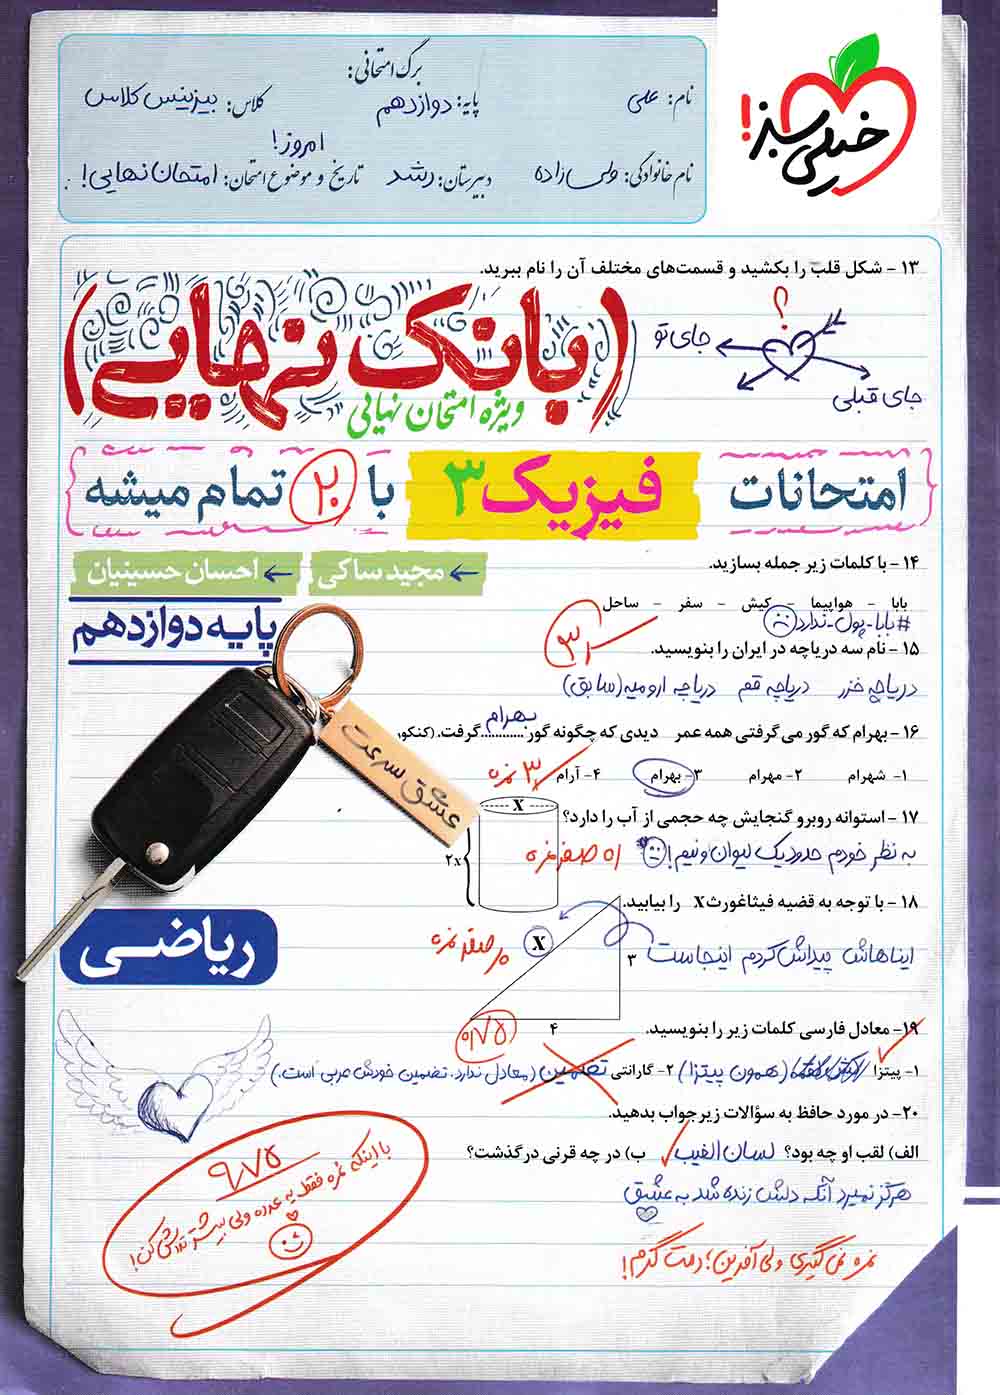 خیلی سبز!
برگ امتحانی:
نام: علی
پایه: دوازدهم
کلاس: بیزینس کلاس
نام خانوادگی: ولی زاده
دبیرستان: رشد
تاریخ و موضوع امتحان: امروز! امتحان نهایی!
۱۳ - شکل قلب را بکشید و قسمت‌های مختلف آن را نام ببرید.
؟
جای تو
جای قبلی
(بانک نهایی)
ویژه امتحان نهایی
امتحانات فیزیک ۳ با ۲۰ تمام میشه
مجید ساکی
احسان حسینیان
پایه دوازدهم
۱۴ - با کلمات زیر جمله بسازید.
بابا - هواپیما - کیش - سفر - ساحل
#بابا-پول-ندارد
۱۵ - نام سه دریاچه در ایران را بنویسید.
دریاچه خزر دریاچه قم دریاچه ارومیه (سابق)
۱۶ - بهرام که گور می گرفتی همه عمر دیدی که چگونه گور ...بهرام... گرفت. (کنکور
۱- شهرام ۲- مهرام ۳- بهرام ۴- آرام
۳ نمره
عشق سرعت
۱۷ - استوانه روبرو گنجایش چه حجمی از آب را دارد؟
x
2x
به نظر خودم حدود یک لیوان و نیم!
صفر نمره
۱۸ - با توجه به قضیه فیثاغورث X را بیابید.
X
۳
۴
ایناهاش پیداش کردم اینجاست
صفر نمره
ریاضی
۱۹- معادل فارسی کلمات زیر را بنویسید.
۰/۷۵
۱- پیتزا (همون پیتزا) ۲- گارانتی تضمین (معادل ندارد. تضمین خودش عربی است.)
۲۰- در مورد حافظ به سؤالات زیر جواب بدهید.
الف) لقب او چه بود؟ لسان الغیب ب) در چه قرنی درگذشت؟
هرگز نمیرد آنکه دلش زنده شد به عشق
نمره نمی‌گیری ولی آفرین؛ دمت گرم!
۹/۷۵
با اینکه نمره فقط یه عدده ولی بیشتر تلاش کن!